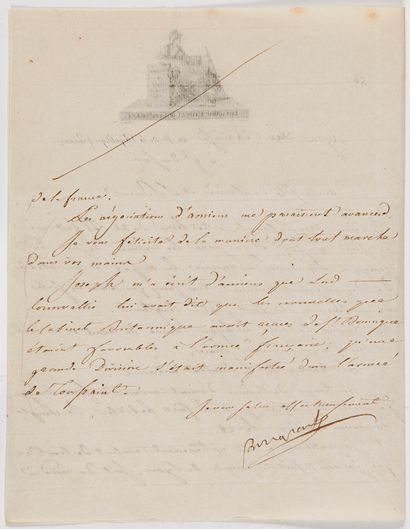 de la france.
Les négociations d'amiens me paraissent avancer.
Je vous félicite de la manière dont tout marche
dans vos mains
Joseph m'a écrit d'amiens que Lord
Cornvallis lui avait dit que les nouvelles que
le Cabinet Britannique avait reçues de St Domingue
étaient favorables à l'armée française, qu'une
grande Division s'était manifestée dans l'armée
de Toussaint.
Je vous salue affectueusement
Bonaparte